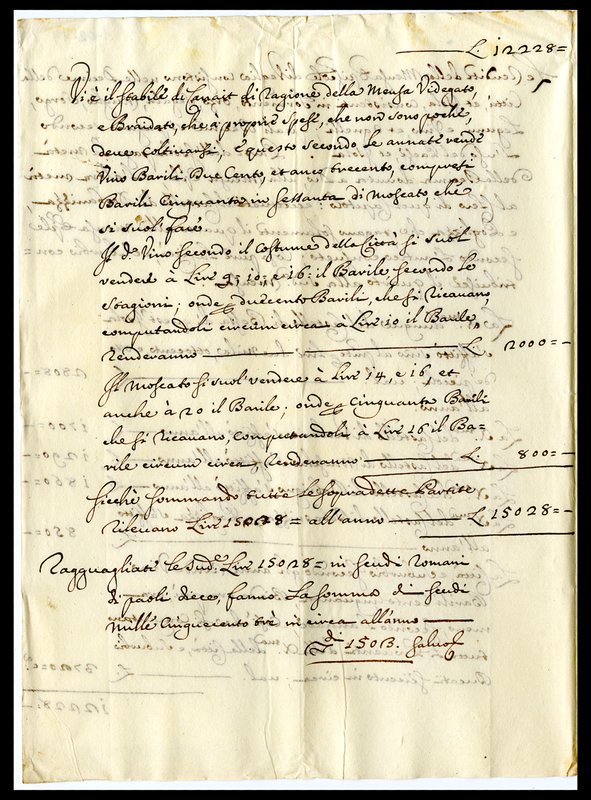 L. 12228=
Vi è il stabile di Cavait di ragione della Mensa Videgato,
e Braidato, che à proprie spese, che non sono poche,
deve coltivarsi, e questo secondo le annate rende
Vino Barili Due Cento, et anco trecento, compresi
Barili Cinquanta in sessanta di Moscato, che
si suol fare
Il d.º Vino secondo il Costume della Città si suol
vendere à Lire 9; 10; e 16: il Barile secondo le
stagioni; onde ducento Barili, che si ricavano,
computandoli circum circa à Lire 10 il Barile,
renderanno L. 2000=
Il Moscato si suol vendere à Lire 14, e 16, et
anche à 20 il Barile; onde Cinquanta Barili
che si ricavano, computandoli à Lire 16 il Ba-
rile circum circa, renderanno L. 800=
Sicchè sommando tutte le sopradette Partite
rilevano Lire 15028= all'anno L. 15028=
Ragguagliate le sud.e Lire 15028= in scudi Romani
di paoli diece, fanno la somma di scudi
mille cinquecento trè in circa all'anno
di 1503. salvo